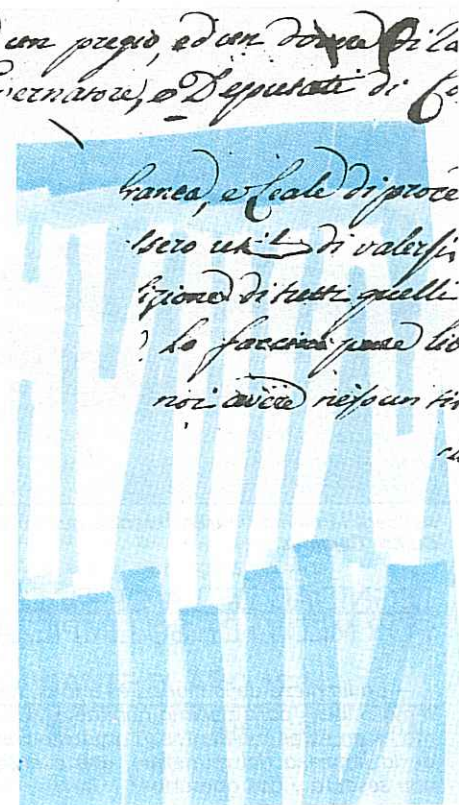 un pregio, ed un
ernatore, e Deputati di Co
ranca, e leale di proce
sero di valersi
izione di tutti quelli
lo faccino pure lib
noi avere nessun